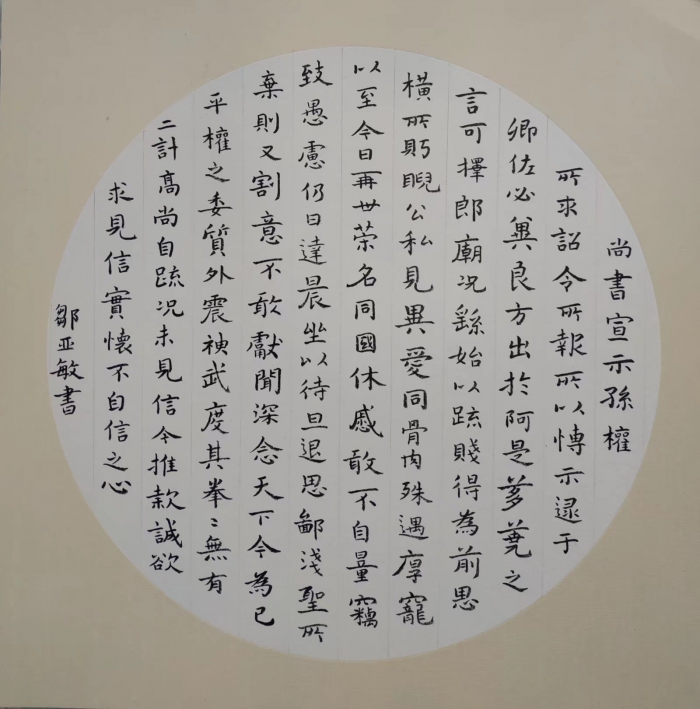 尚書宣示孫權
所求詔令所報所以博示逮于
卿佐必冀良方出於阿是芻蕘之
言可擇郎廟況繇始以疏賤得為前思
橫所眄睨公私見異愛同骨肉殊遇厚寵
以至今日再世荣名同國休慼敢不自量竊
致愚慮仍日達晨坐以待旦退思鄙淺聖所
棄則又割意不敢獻聞深念天下今為已
平權之委質外震神武度其拳〻無有
二計高尚自疏況未見信今推款誠欲
求見信實懷不自信之心
鄒亚敏書